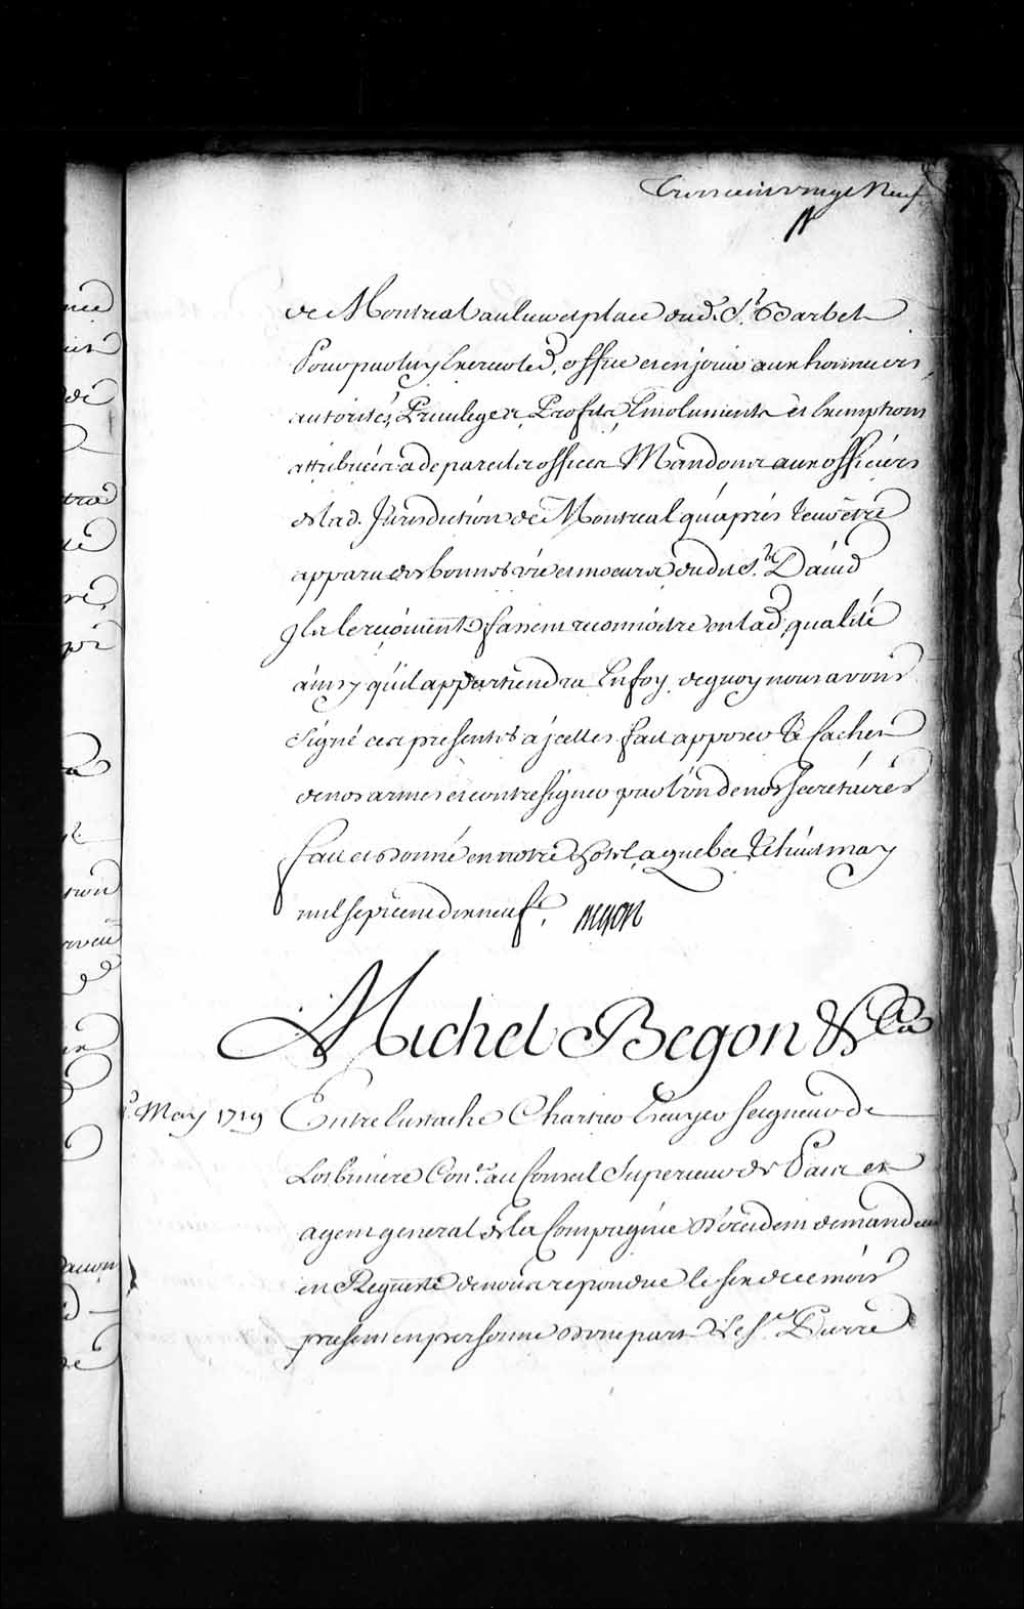 Trois cent vingt Neuf
de Montreal au lieu et place dud. S.r Barbel
Pour par luy Exercer led. office et en jouir aux honneurs,
autorités, Privileges, Profits, Emoluments et Exemptions
attribuées a de pareils offices Mandons aux officiers
de lad. Jurisdiction de Montreal qu'aprés leur etre
apparu des bonnes vie et moeurs dudit S.r David
Ils le reçoivent & fassent reconnoitre en lad. qualité
ainsy qu'il appartiendra En foy de quoy nous avons
signé ces presentes a jcelles fait apposer le Cachet
de nos armes et contresigner par l'un de nos Secretaires
fait et donné en notre hotel, a quebec le huit may
mil sept cent dix neuf. Begon
Michel Begon &Ca
May 1719
Entre Eustache Chartier Ecuyer Seigneur de
Lotbiniere Con.er au Conseil Superieur de Paix et
agent general de la Compagnie D'occident demandeur
en Requeste de nous repondue le six de ce mois
present en personne d'une part & le S.r Pierre